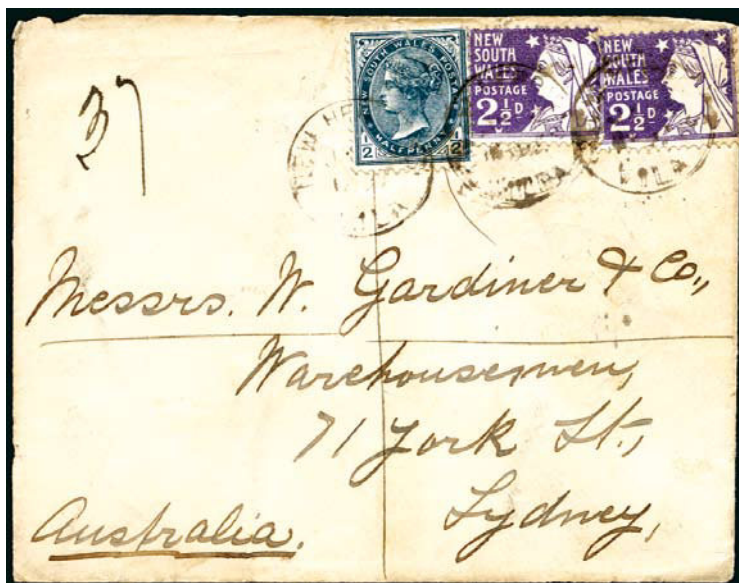 NEW SOUTH WALES POSTAGE
1/2 1/2
HALFPENNY
NEW
SOUTH
WALES
POSTAGE
2½D
NEW
SOUTH
WALES
POSTAGE
2½D
37
NEW HE
VILA
VILA
Messrs. W. Gardiner & Co.,
Warehousemen,
71 York St.,
Sydney,
Australia.